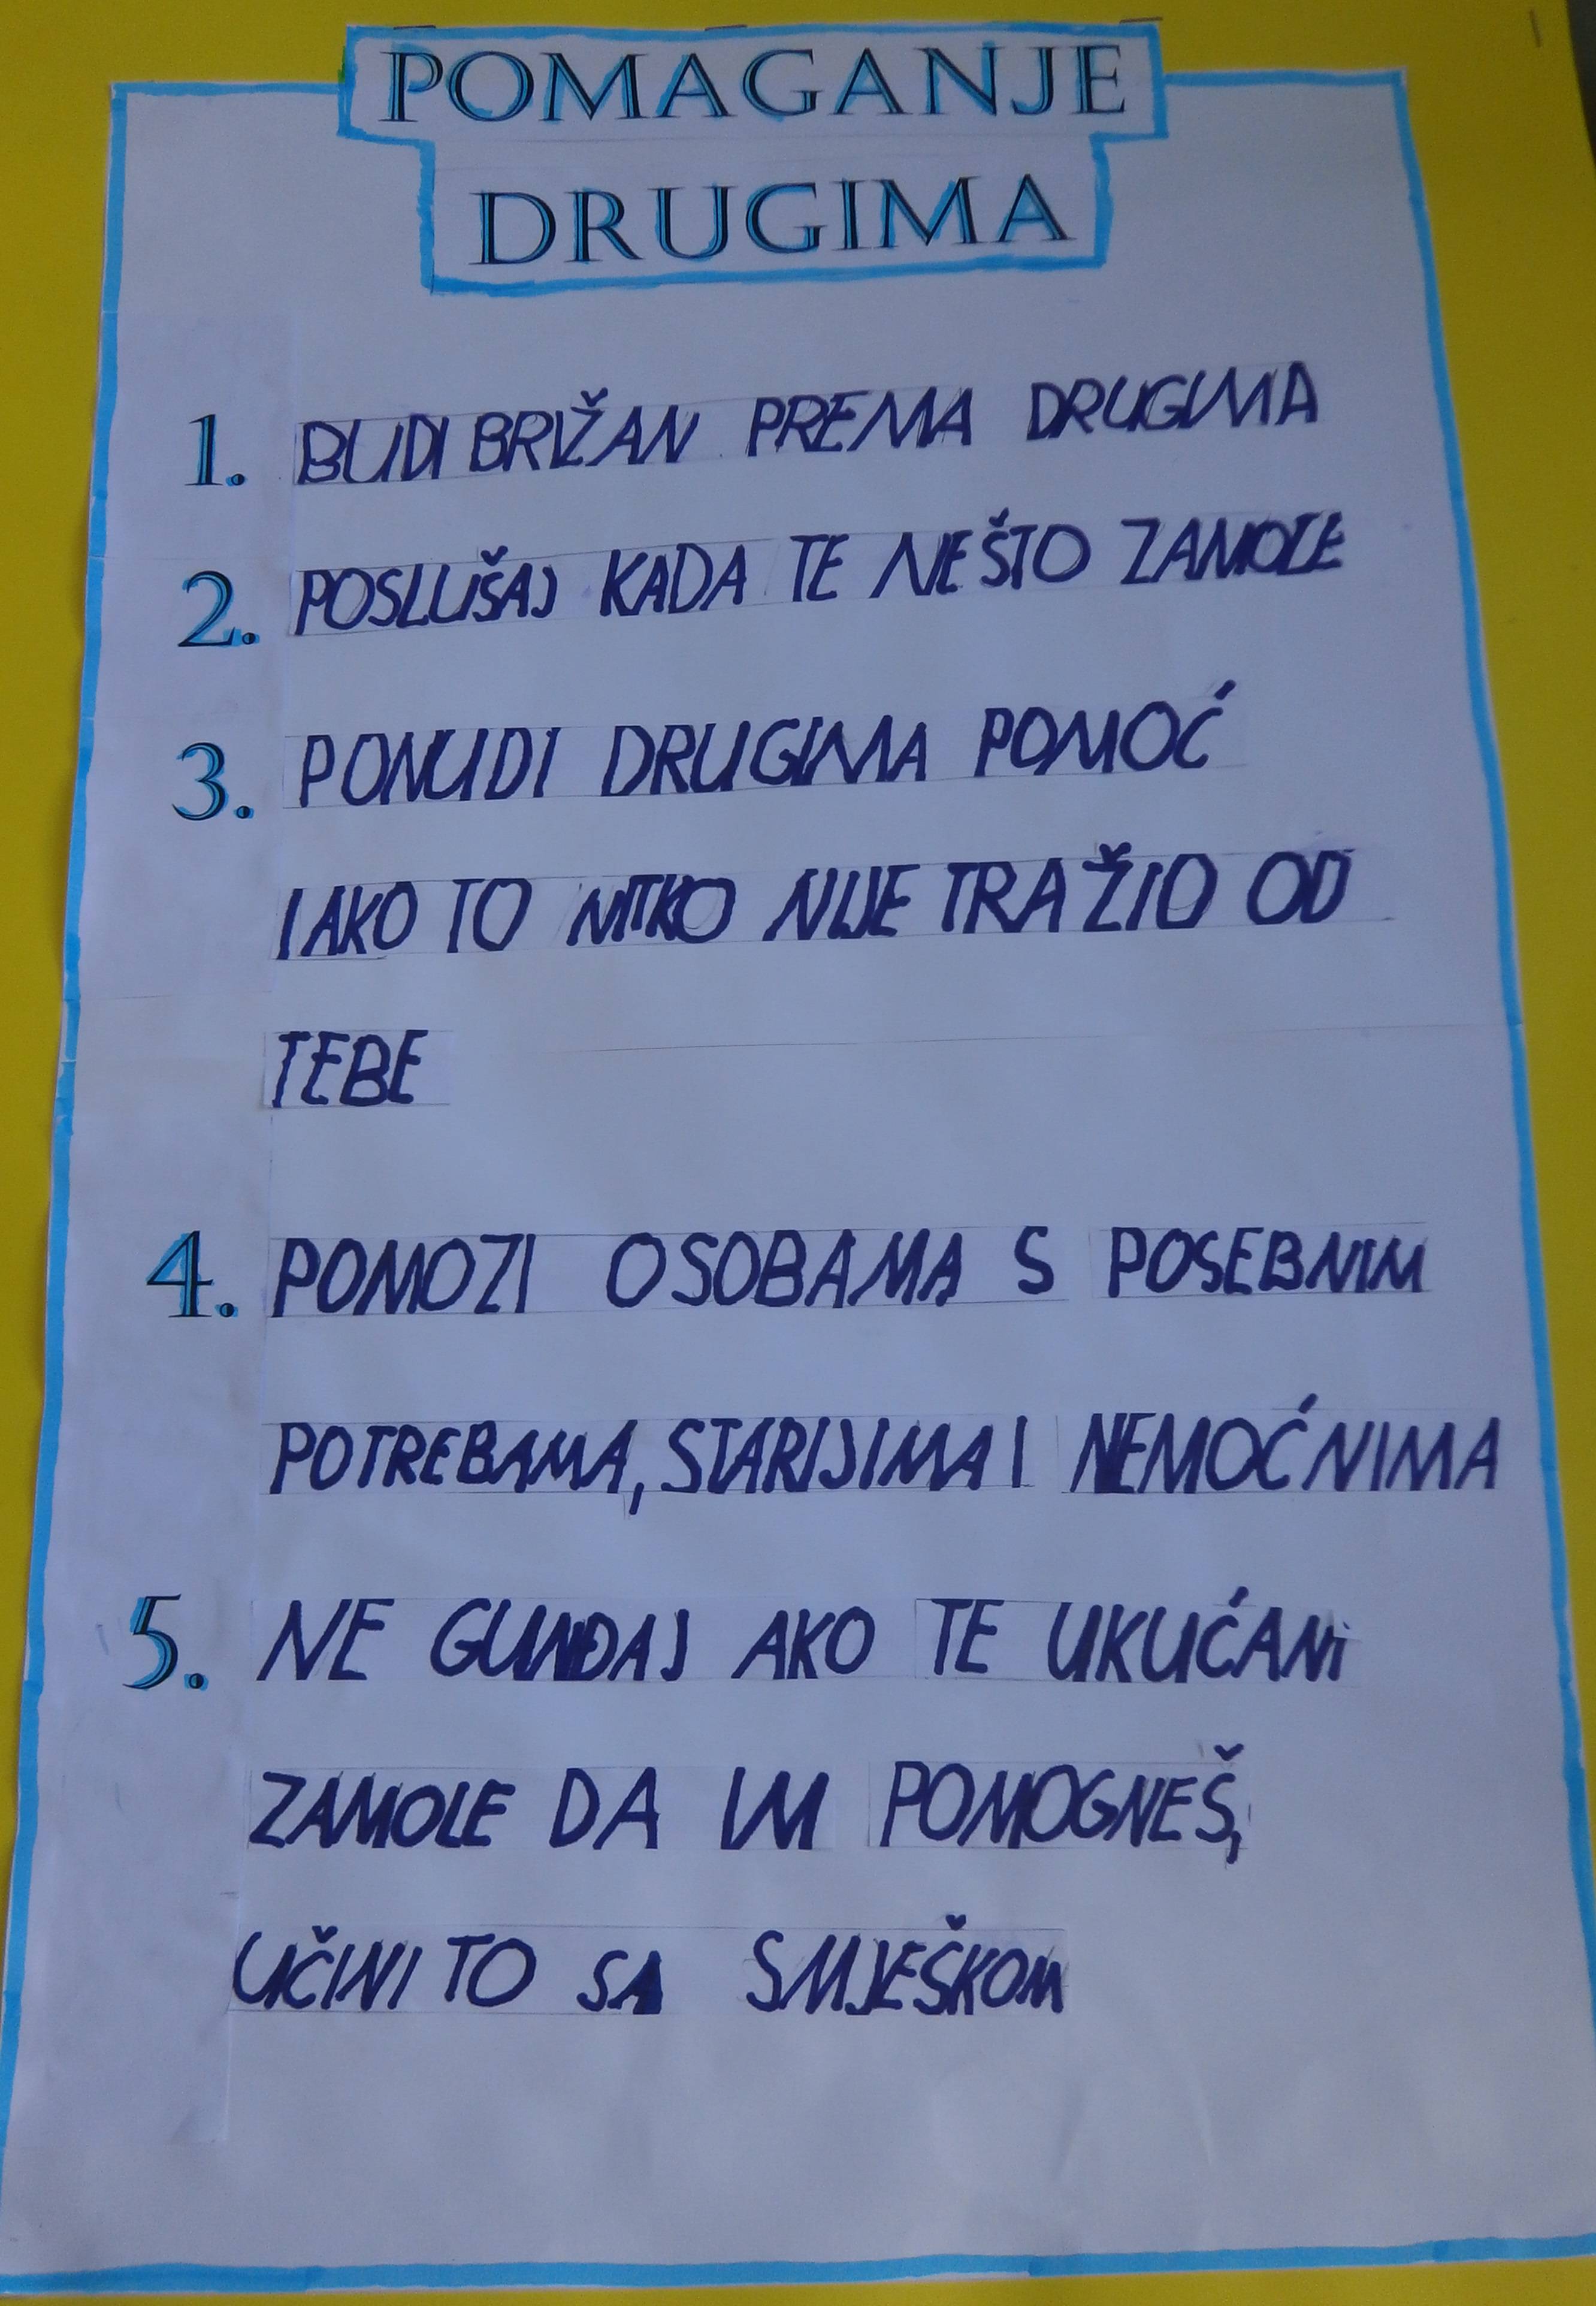 POMAGANJE
DRUGIMA
1. BUDI BRIŽAN PREMA DRUGIMA
2. POSLUŠAJ KADA TE NEŠTO ZAMOLE
3. PONUDI DRUGIMA POMOĆ
IAKO TO NITKO NIJE TRAŽIO OD
TEBE
4. POMOZI OSOBAMA S POSEBNIM
POTREBAMA, STARIJIMA I NEMOĆNIMA
5. NE GUNĐAJ AKO TE UKUĆANi
ZAMOLE DA IM POMOGNEŠ,
UČINI TO SA SMJEŠKOM